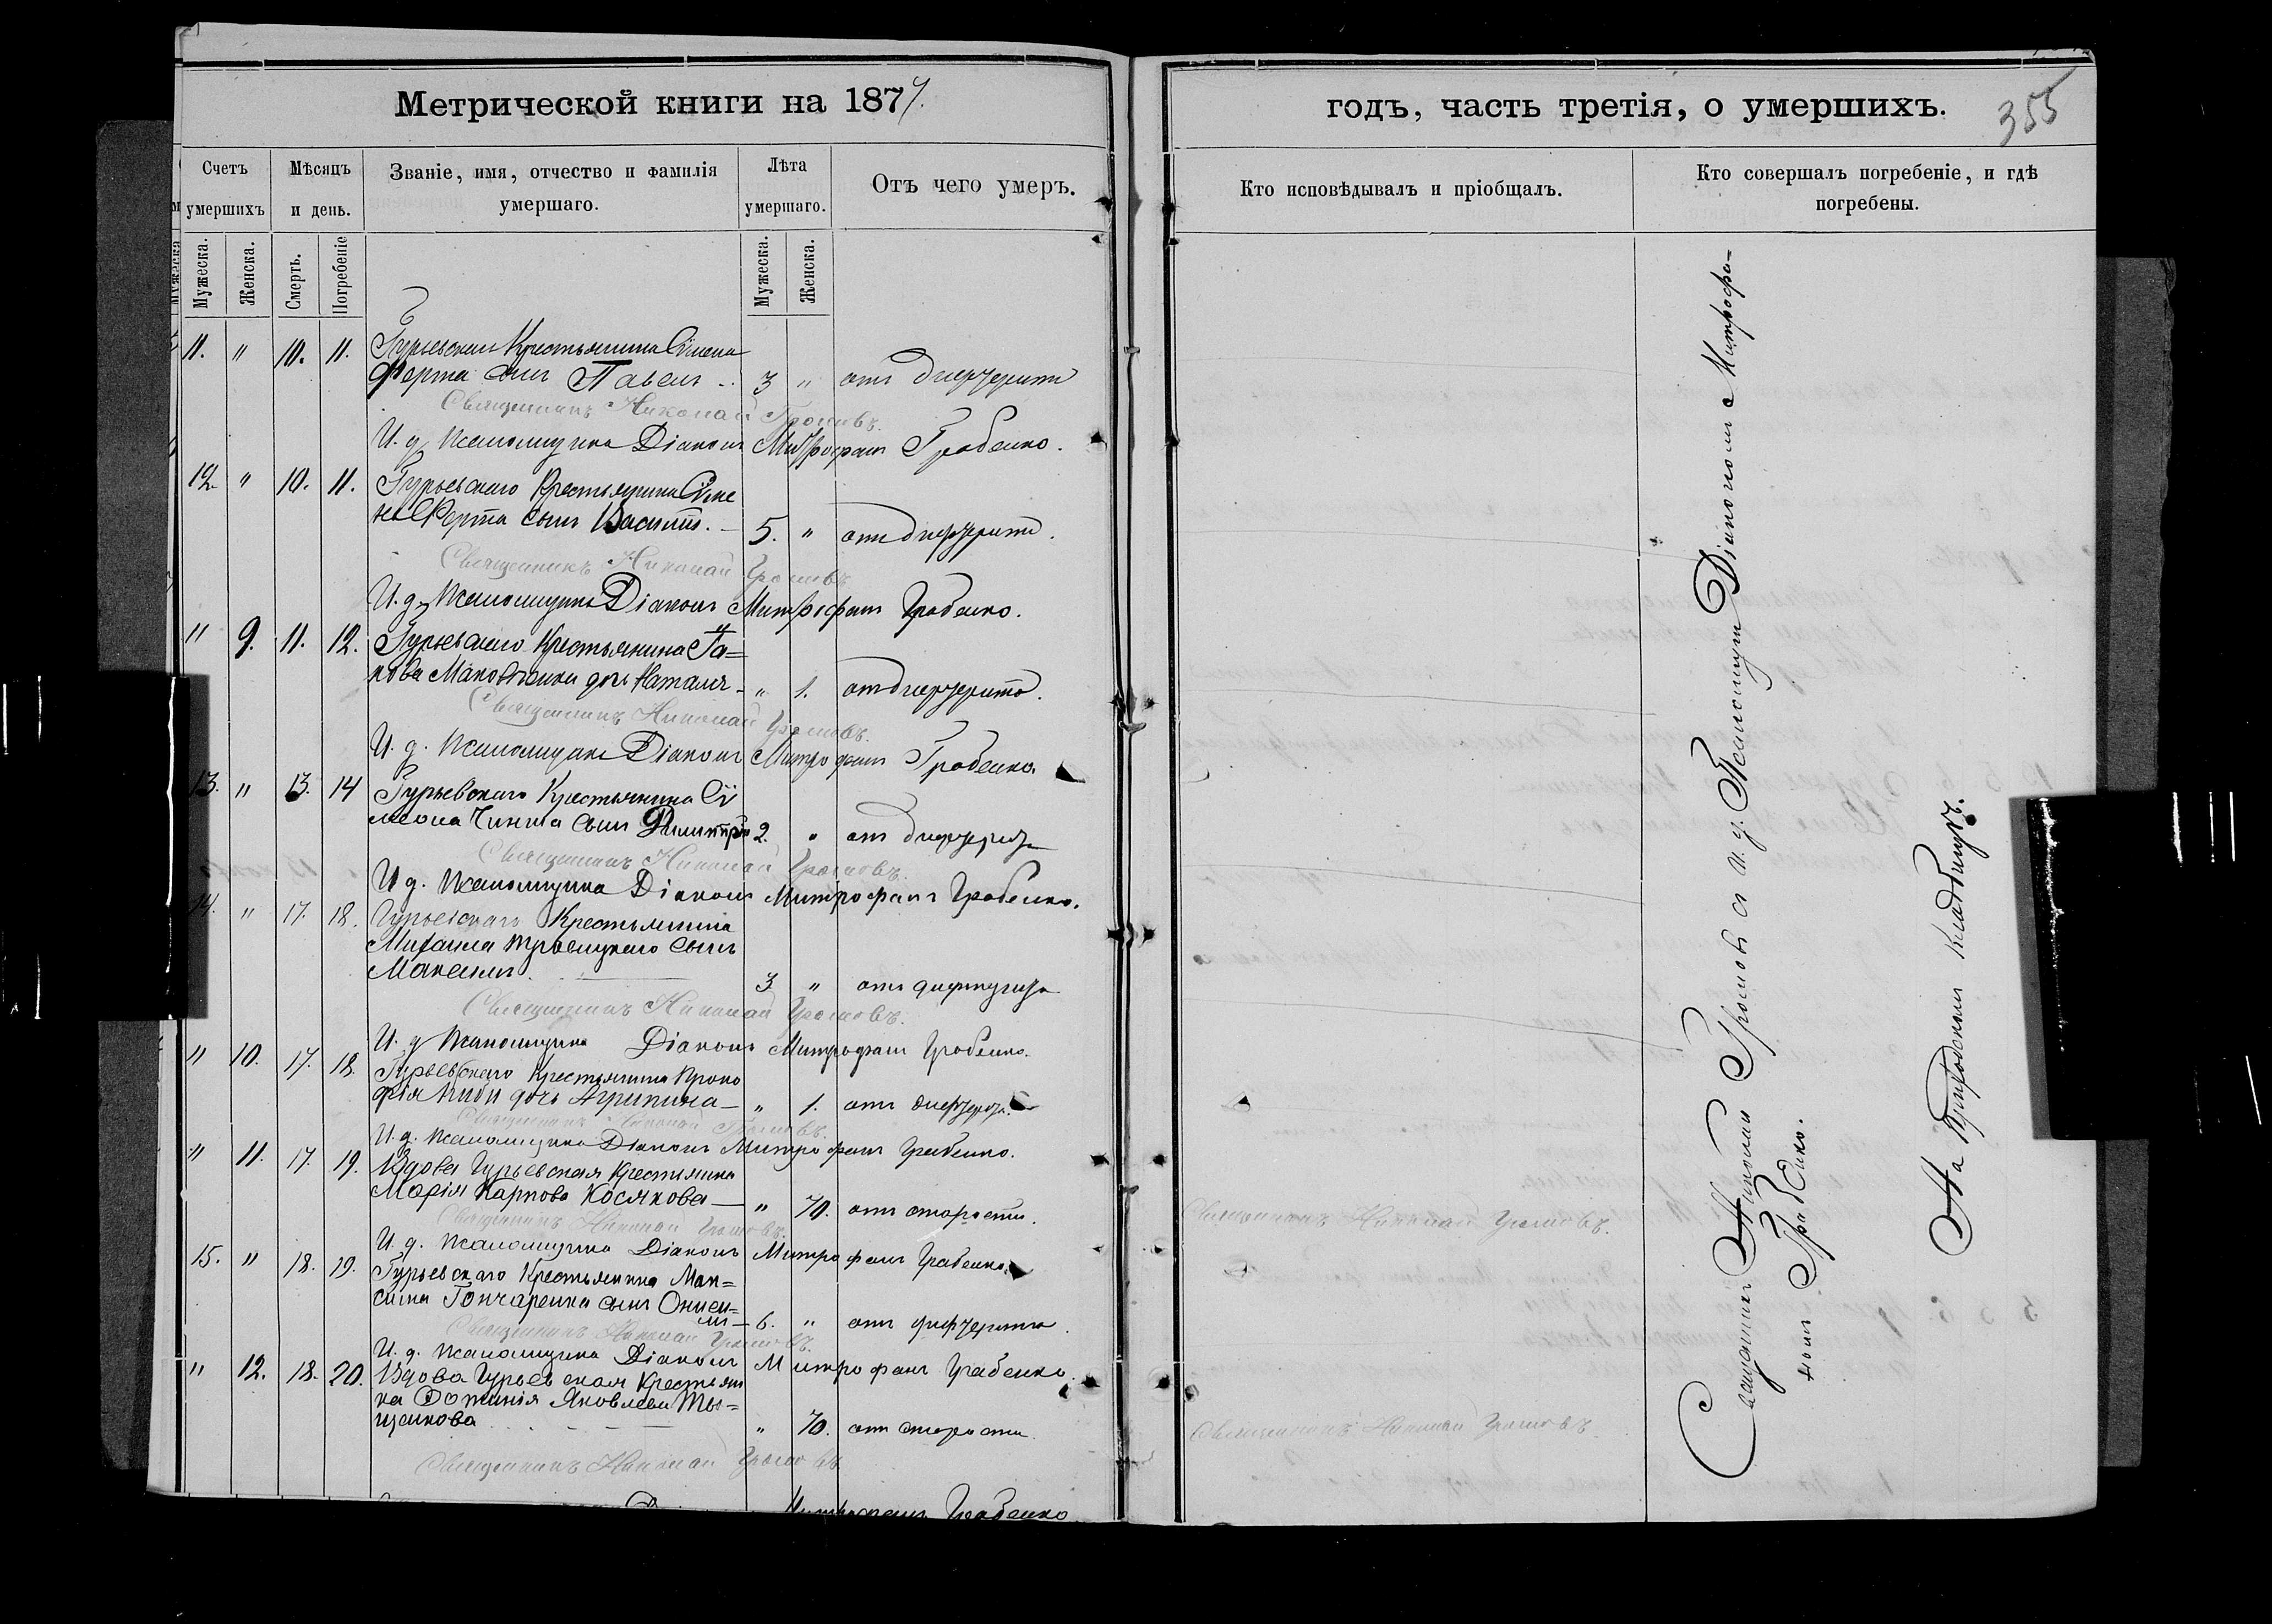 Метрической книги на 1877.
годъ, часть третія, о умершихъ.
355
Счетъ умершихъ
Мѣсяцъ и день.
Званіе, имя, отчество и фамилія умершаго.
Лѣта умершаго.
Отъ чего умеръ.
Кто исповѣдывалъ и пріобщалъ.
Кто совершалъ погребеніе, и гдѣ погребены.
Мужеска.
Женска.
Смерть.
Погребеніе
Мужеска.
Женска.
11. " 10. 11. Гурьевскаго Крестьянина Сімеона
Ферта сынъ Павелъ 3 " отъ дифтерита
Священникъ Николай Громовъ.
И. д. Псаломщика Діаконъ Митрофанъ Грабенко.
12. " 10. 11. Гурьевскаго Крестьянина Сіме
на Ферта сынъ Василій. 5. " отъ дифтерита.
Священникъ Николай Громовъ
И. д. Псаломщика Діаконъ Митрофанъ Грабенко.
" 9. 11. 12. Гурьевскаго Крестьянина Іа=
кова дочь Наталія " 1. отъ дифтерита.
Священникъ Николай Громовъ.
И. д. Псаломщика Діаконъ Митрофанъ Грабенко
13. " 13. 14 Гурьевскаго Крестьянина Сі
меона сынъ Димитрій 2. " отъ дифтерита
Священникъ Николай Громовъ.
И д. Псаломщика Діаконъ Митрофанъ Грабенко.
14. " 17. 18. Гурьевскаго Крестьянина
Михаила сынъ
Максимъ 3 " отъ дифтерита
Священникъ Николай Громовъ.
И. д Псаломщика Діаконъ Митрофанъ Грабенко.
" 10. 17. 18. Гурьевскаго Крестьянина Проко
фія дочь Агрипина " 1. отъ дифтерита.
Священникъ Николай Громовъ.
И. д. Псаломщика Діаконъ Митрофанъ Грабенко.
" 11. 17. 19. Вдова Гурьевская Крестьянка
Марія Карпова Косякова " 70. отъ старости.
Священникъ Николай Громовъ.
И. д. Псаломщика Діаконъ Митрофанъ Грабенко.
15. " 18. 19. Гурьевскаго Крестьянина Мак=
сима Гончаренка сынъ
6. " отъ дифтерита.
Священникъ Николай Громовъ.
И. д. Псаломщика Діаконъ Митрофанъ Грабенко.
" 12. 18. 20. Вдова Гурьевская Крестьян
ка Яковлева
" 70. отъ старости
Священникъ Николай Громовъ
Митрофанъ Грабенко.
Священникъ Николай Громовъ.
Священникъ Николай Громовъ.
Священникъ Николай Громовъ съ и. д. Псаломщика Діакономъ Митрофа-
номъ Грабенко.
На Приходскомъ кладбищѣ.